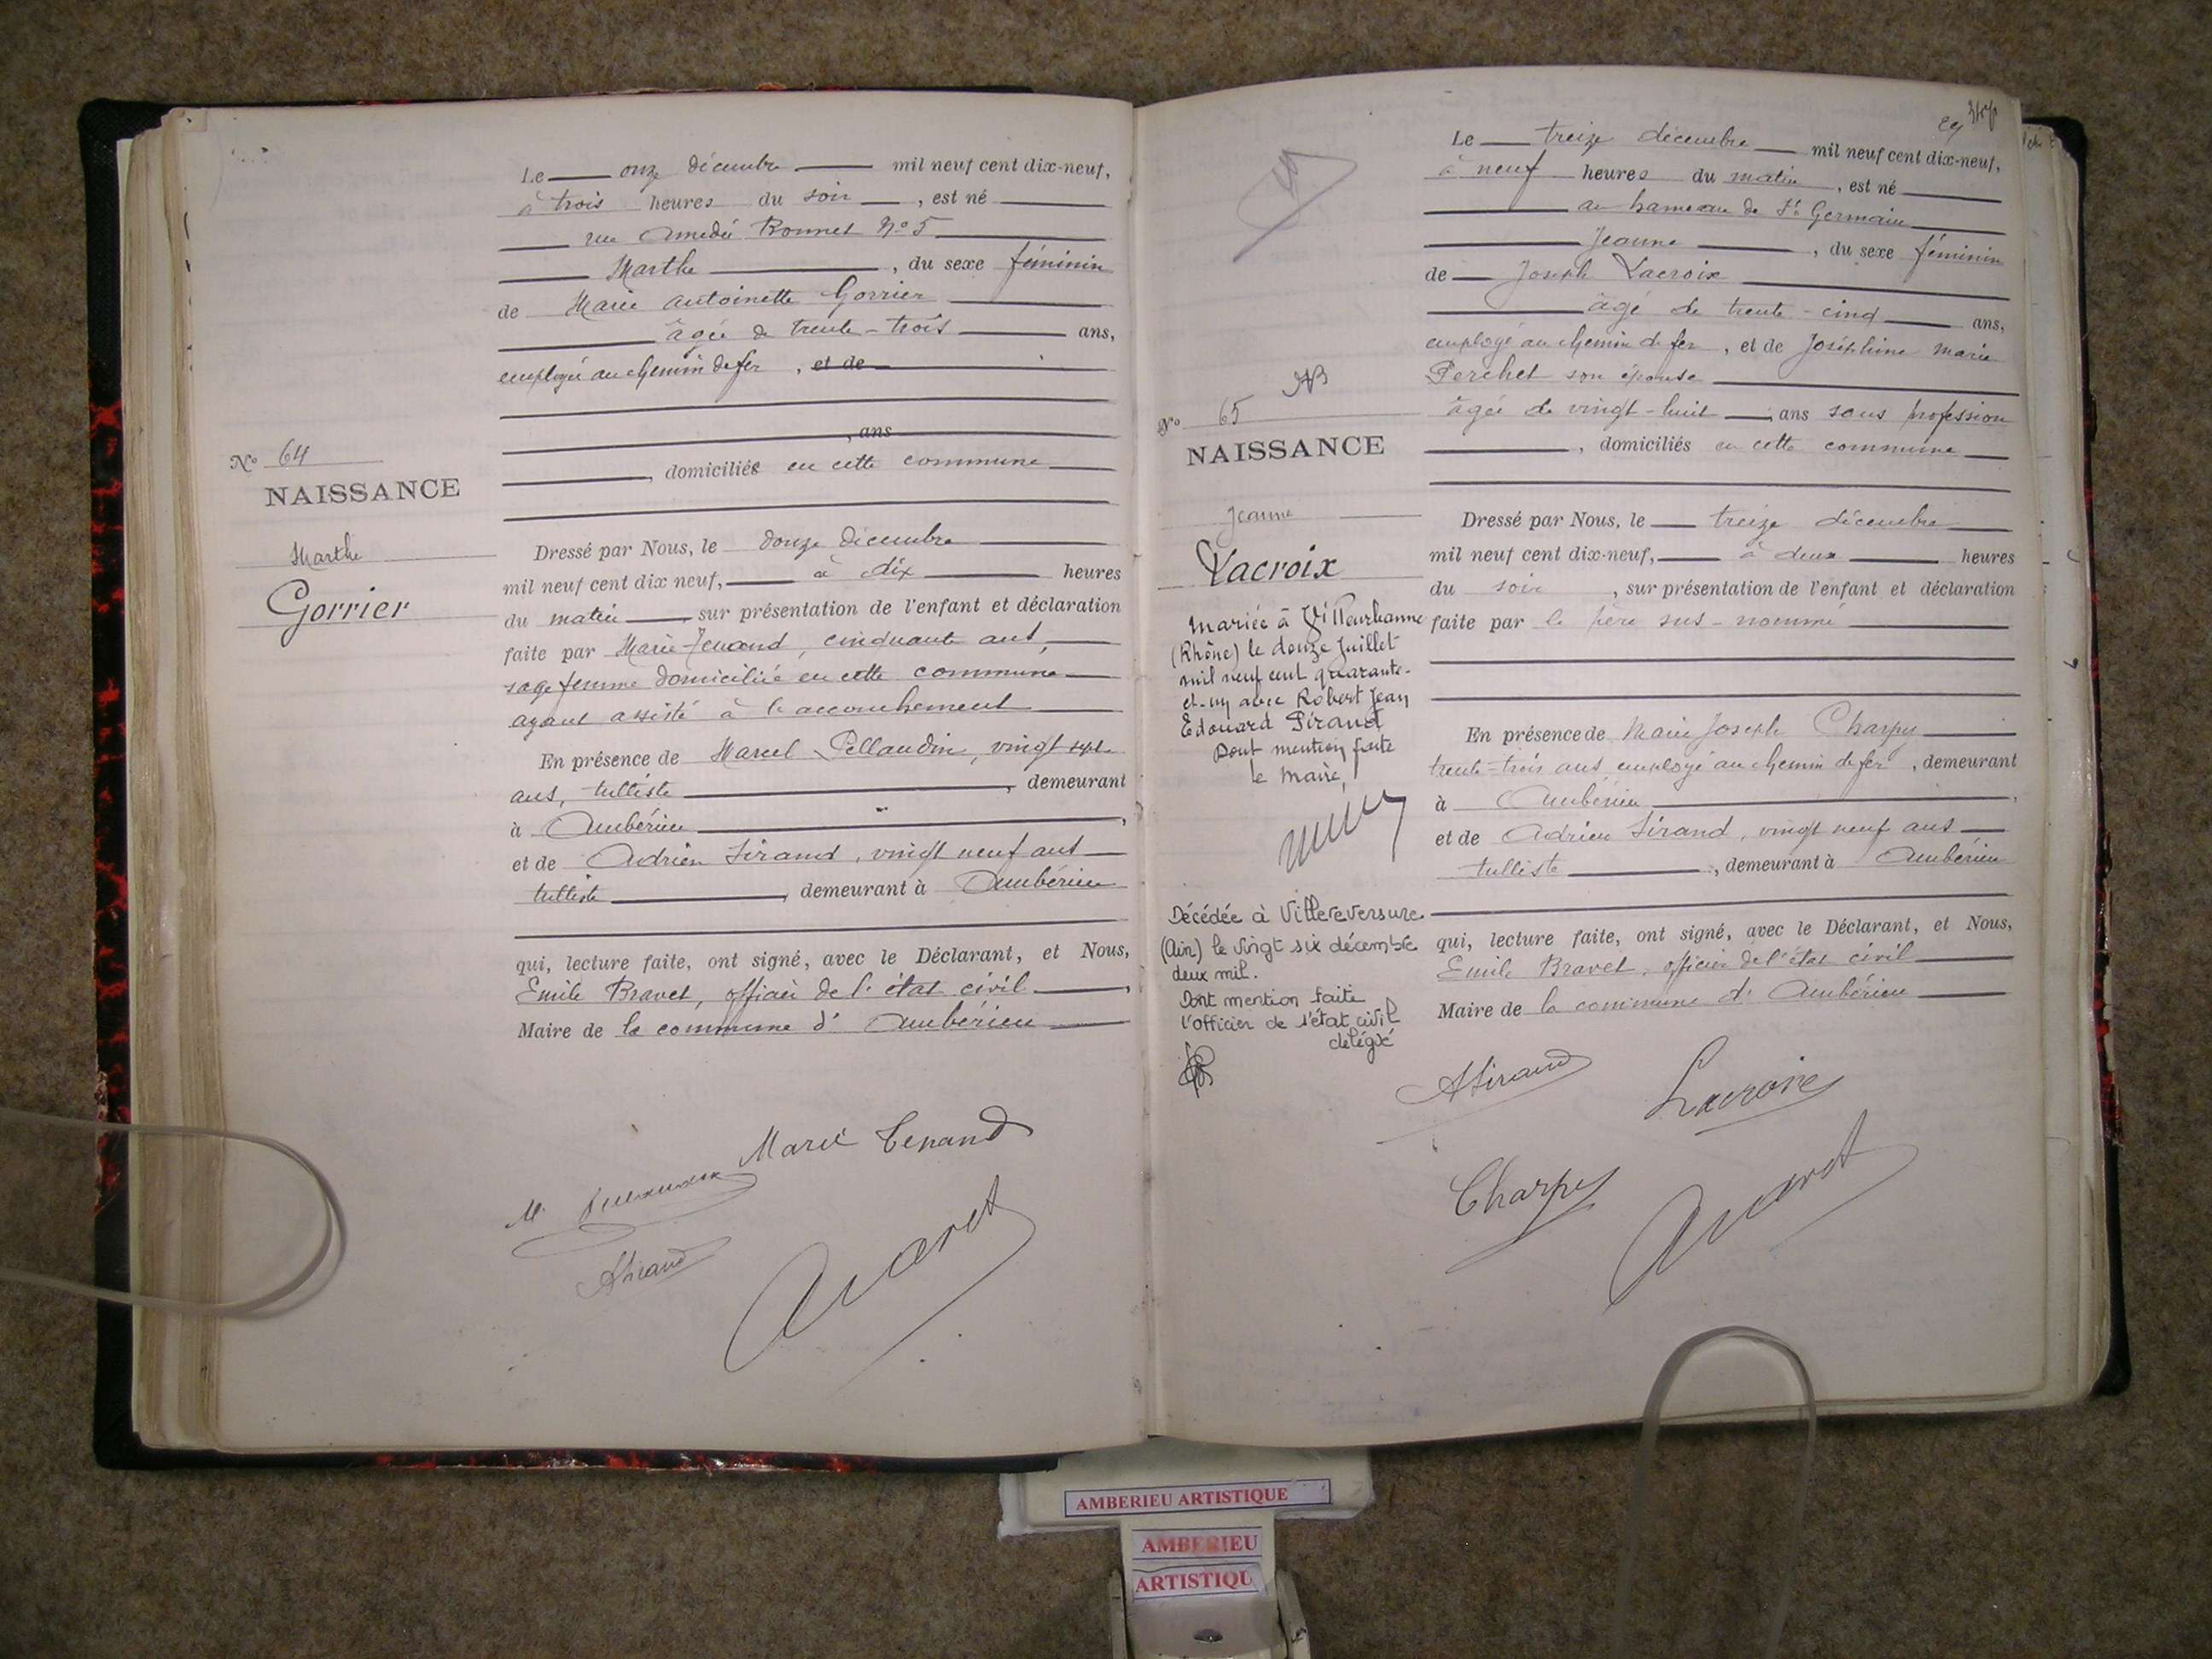 Le onze décembre mil neuf cent dix-neuf,
à trois heures du soir, est né
rue Amédée Bonnet N° 5
Marthe, du sexe féminin
de Marie Antoinette Gorrier
âgée de trente-trois ans,
employée au chemin de fer, et de
, ans
, domiciliée en cette commune
N° 64
NAISSANCE
Marthe
Gorrier
Dressé par Nous, le douze décembre
mil neuf cent dix neuf, à dix heures
du matin, sur présentation de l'enfant et déclaration
faite par Marie Tenand, cinquante ans,
sage femme domiciliée en cette commune
ayant assisté à l'accouchement
En présence de Marcel Pellaudin, vingt sept
ans, tulliste, demeurant
à Ambérieu,
et de Adrien Sirand, vingt neuf ans
tulliste, demeurant à Ambérieu
qui, lecture faite, ont signé, avec le Déclarant, et Nous,
Emile Bravet, officier de l'état civil,
Maire de la commune d'Ambérieu
Marie Tenand
ASirand
Le treize décembre mil neuf cent dix-neuf,
à neuf heures du matin, est né
au hameau de St Germain
Jeanne, du sexe féminin
de Joseph Lacroix
âgé de trente-cinq ans,
employé au chemin de fer, et de Joséphine Marie
Perchet son épouse
âgée de vingt-huit ans sans profession
, domiciliés en cette commune
N° 65
NAISSANCE
Jeanne
Lacroix
Mariée à Villeurbanne
(Rhône) le douze Juillet
mil neuf cent quarante-
et-un avec Robert Jean
Edouard Pirand
Dont mention faite
le Maire,
Décédée à Villereversure
(Ain) le vingt six décembre
deux mil.
Dont mention faite
l'officier de l'état civil
délégué
Dressé par Nous, le treize décembre
mil neuf cent dix-neuf, à deux heures
du soir, sur présentation de l'enfant et déclaration
faite par le père sus-nommé
En présence de Marie Joseph Charpy
trente-trois ans employé au chemin de fer, demeurant
à Ambérieu,
et de Adrien Sirand, vingt neuf ans
tulliste, demeurant à Ambérieu
qui, lecture faite, ont signé, avec le Déclarant, et Nous,
Emile Bravet, officier de l'état civil
Maire de la commune d'Ambérieu
ASirand
Lacroix
Charpy
AMBERIEU ARTISTIQUE
AMBERIEU
ARTISTIQU